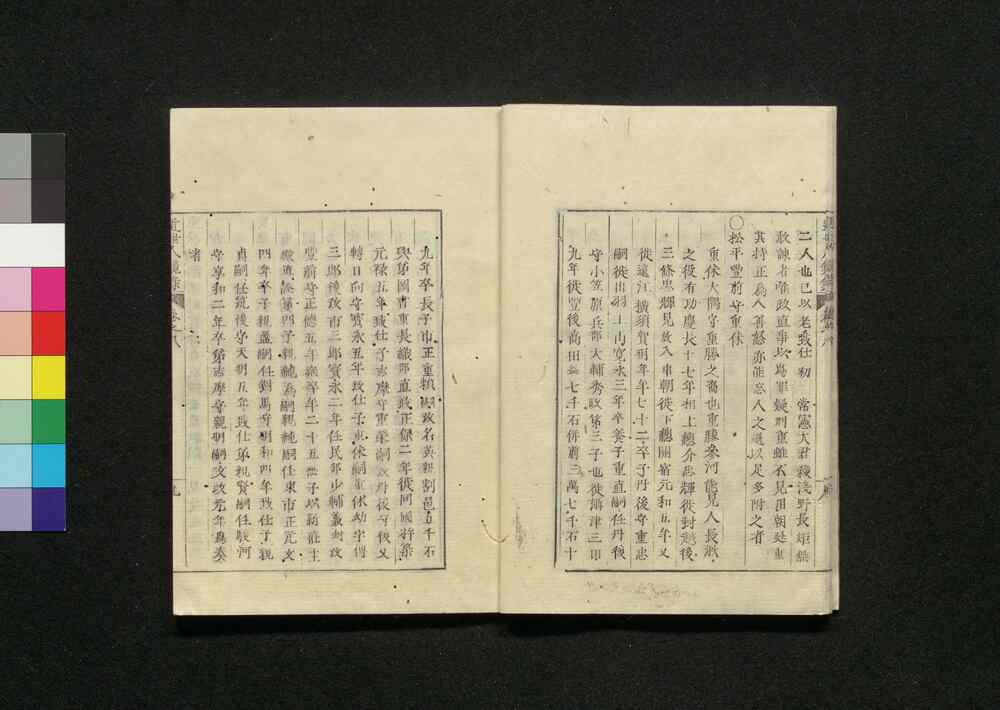 二人也已以老致仕初 常憲大君裁淺野長矩無
敢諫者重政直爭以為罪疑刑重雖不見用朝廷
其持正為人善怒亦能忘人之過以足多附之者
〇松平豐前守重休
重休大隅守重勝之裔也重勝參河能見人長
之役有功慶長十七年相上總介忠輝從封越後
三條忠輝見放入事朝徙下總關宿元和五年又
徙遠江橫須賀明年年七十二卒子丹後守重忠
嗣徙出羽上山寬永三年卒養子重直嗣任丹後
守小笠原兵部大輔秀政第三子也徙攝津三田
九年徙豐後高田益七千石併前三萬七千石十
九年卒長子市正重賴嗣致名英親割邑五千石
與第圖書重長織部直政正保二年徙同國杵築
元祿五年致仕子志摩守重榮嗣改丹後守後又
轉日向守寶永五年致仕子重休嗣重休幼字傳
三郎後改市三郎寶永二年任民部少輔襲封改
豐前守正德五年卒年二十五無子以
直第四子親純為嗣親純嗣任東市正元文
四年卒子親盈嗣任對馬守明和四年致仕子親
貞嗣任筑後守天明五年致仕弟親賢嗣任駿河
守享和二年卒弟志摩守親明嗣文政元年為奏
者
九